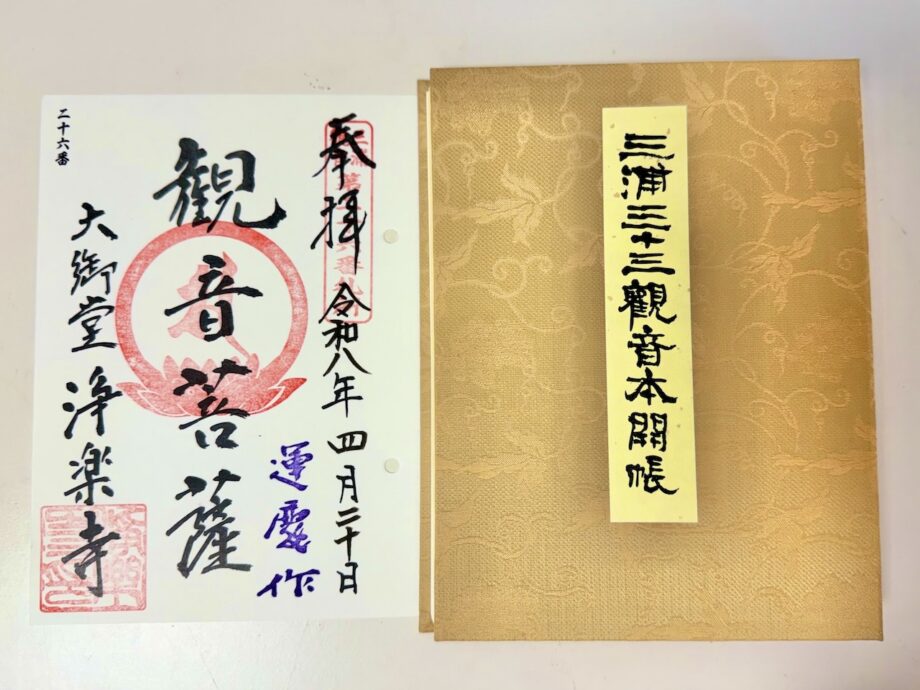 三浦三十三觀音本開帳
奉拝 令和八年四月二十日
運慶作
觀音菩薩
大御堂 浄楽寺
二十六番